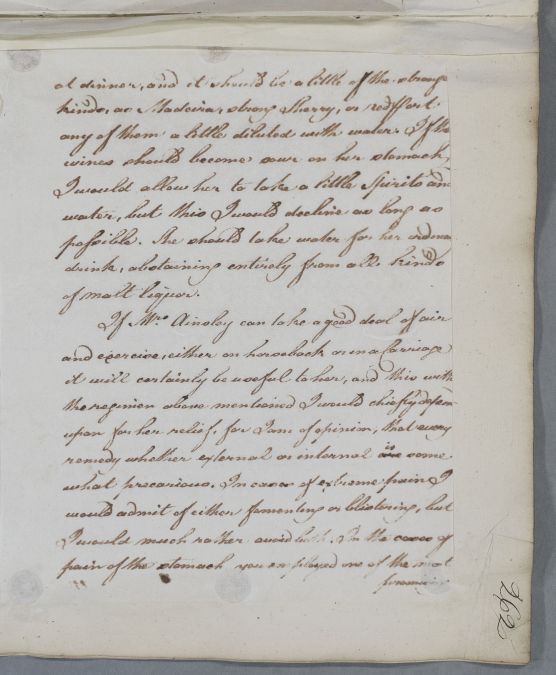 at dinner, and it should be a little of the strong
kinds, as Madeira, strong Sherry, or red port
any of them a little diluted with water. If the
wines should become sour on her stomach,
I would allow her to take a little Spirits and
water, but this I would decline as long as
possible. She should take water for her ordina
drink, abstaining entirely from all kinds
of malt liquor.
If Mrs. Ainsley can take a good deal of air
and exercise, either on horseback or in a Carriage
it will certainly be useful to her, and this with
the regimen above mentioned I would chiefly depen
upon for her relief, for I am of opinion, that every
remedy whether external or internal is some
what precarious. In cases of extreme pain I
would admit of either fomenting or blistering, but
I would much rather avoid both. In the cases of
pain of the stomach you employed one of the most
promising
262